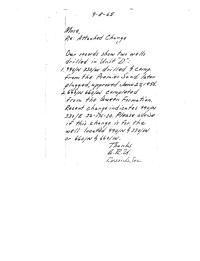 9-8-65
Re: Attached Change
Our records show two wells
drilled in Unit "D":
1. 990/N 330/W drilled & comp.
from the Premier Sand later
plugged, approved June
2. 660/N 660/W completed
from the Queen formation.
Recent change indicates 990/N
330/E Please advise
if this change is for the
well located 990/N & 330/W
or 660/N & 660/W.
Thanks